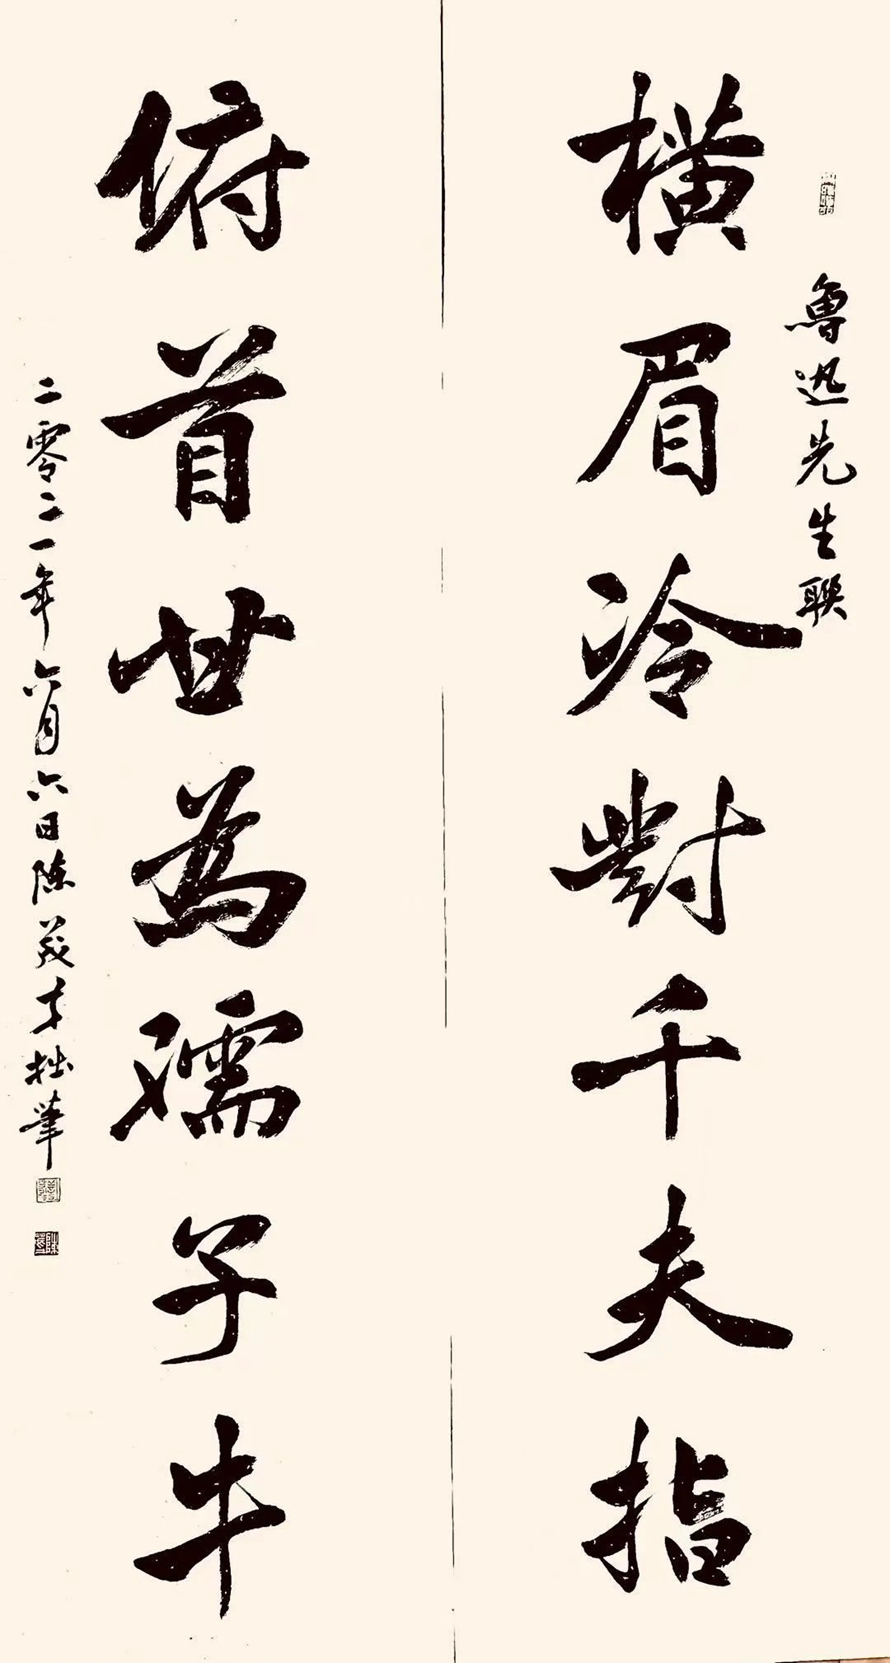 魯迅先生聯
横眉冷對千夫指
俯首甘為孺子牛
二零二一年六月六日陳茂才拙筆